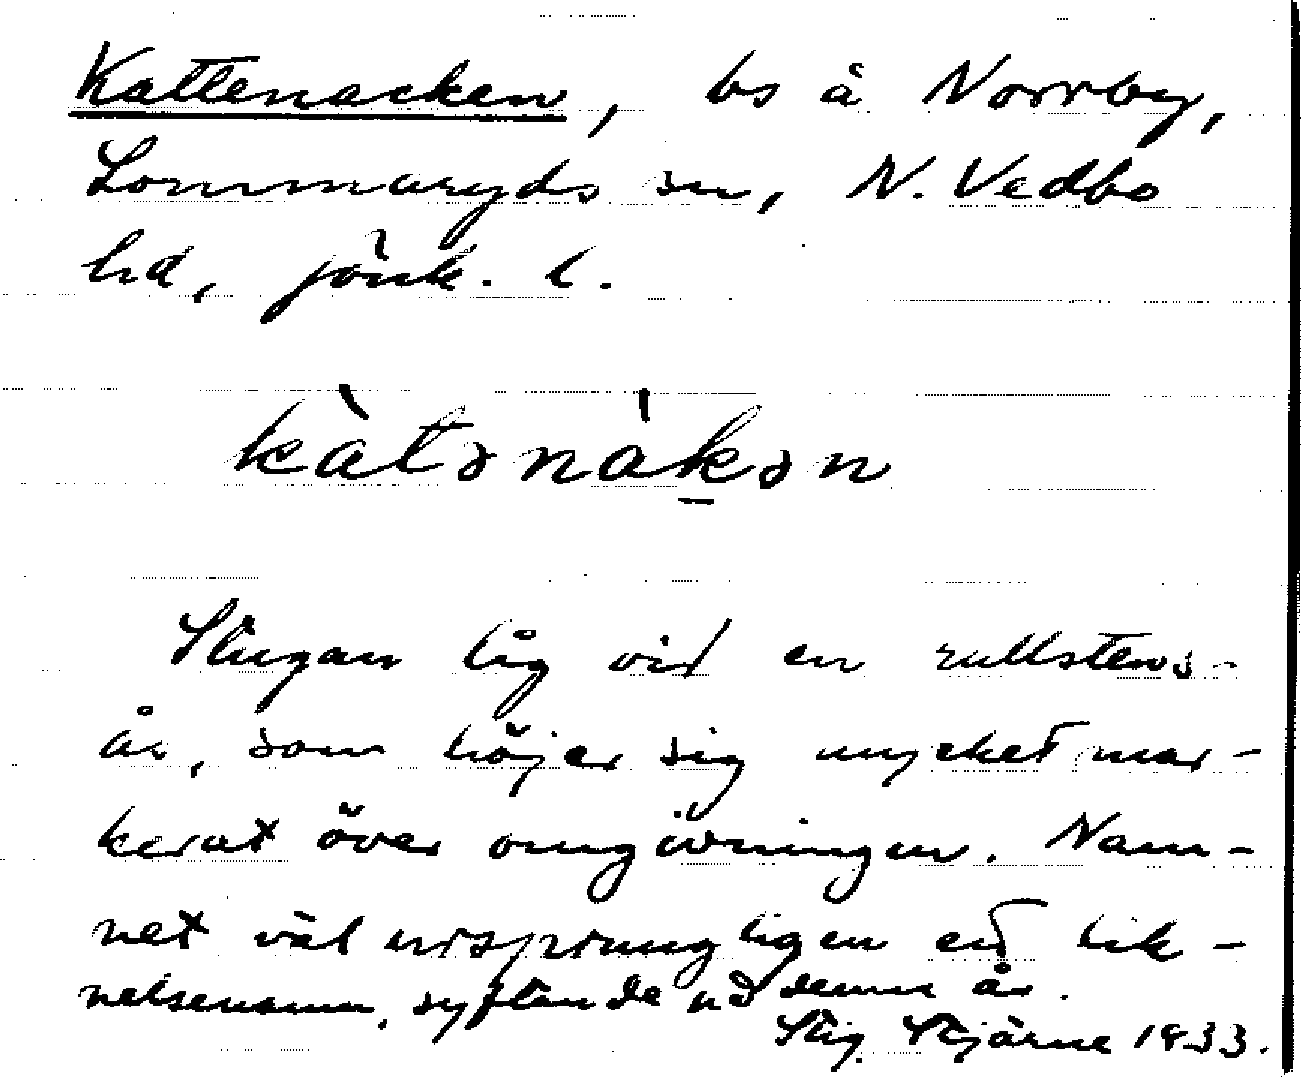 Kattenacken, bs å Norrby,
Lommaryds sn, N. Vedbo
hd, Jönk. l.
kàtənàkən
Stugan låg vid en rullstens-
ås, som höjer sig mycket mar-
kerat över omgivningen. Nam-
net väl ursprungligen ett lik-
nelsenamn, syftande på denna ås.
Stig Stjärne 1933.